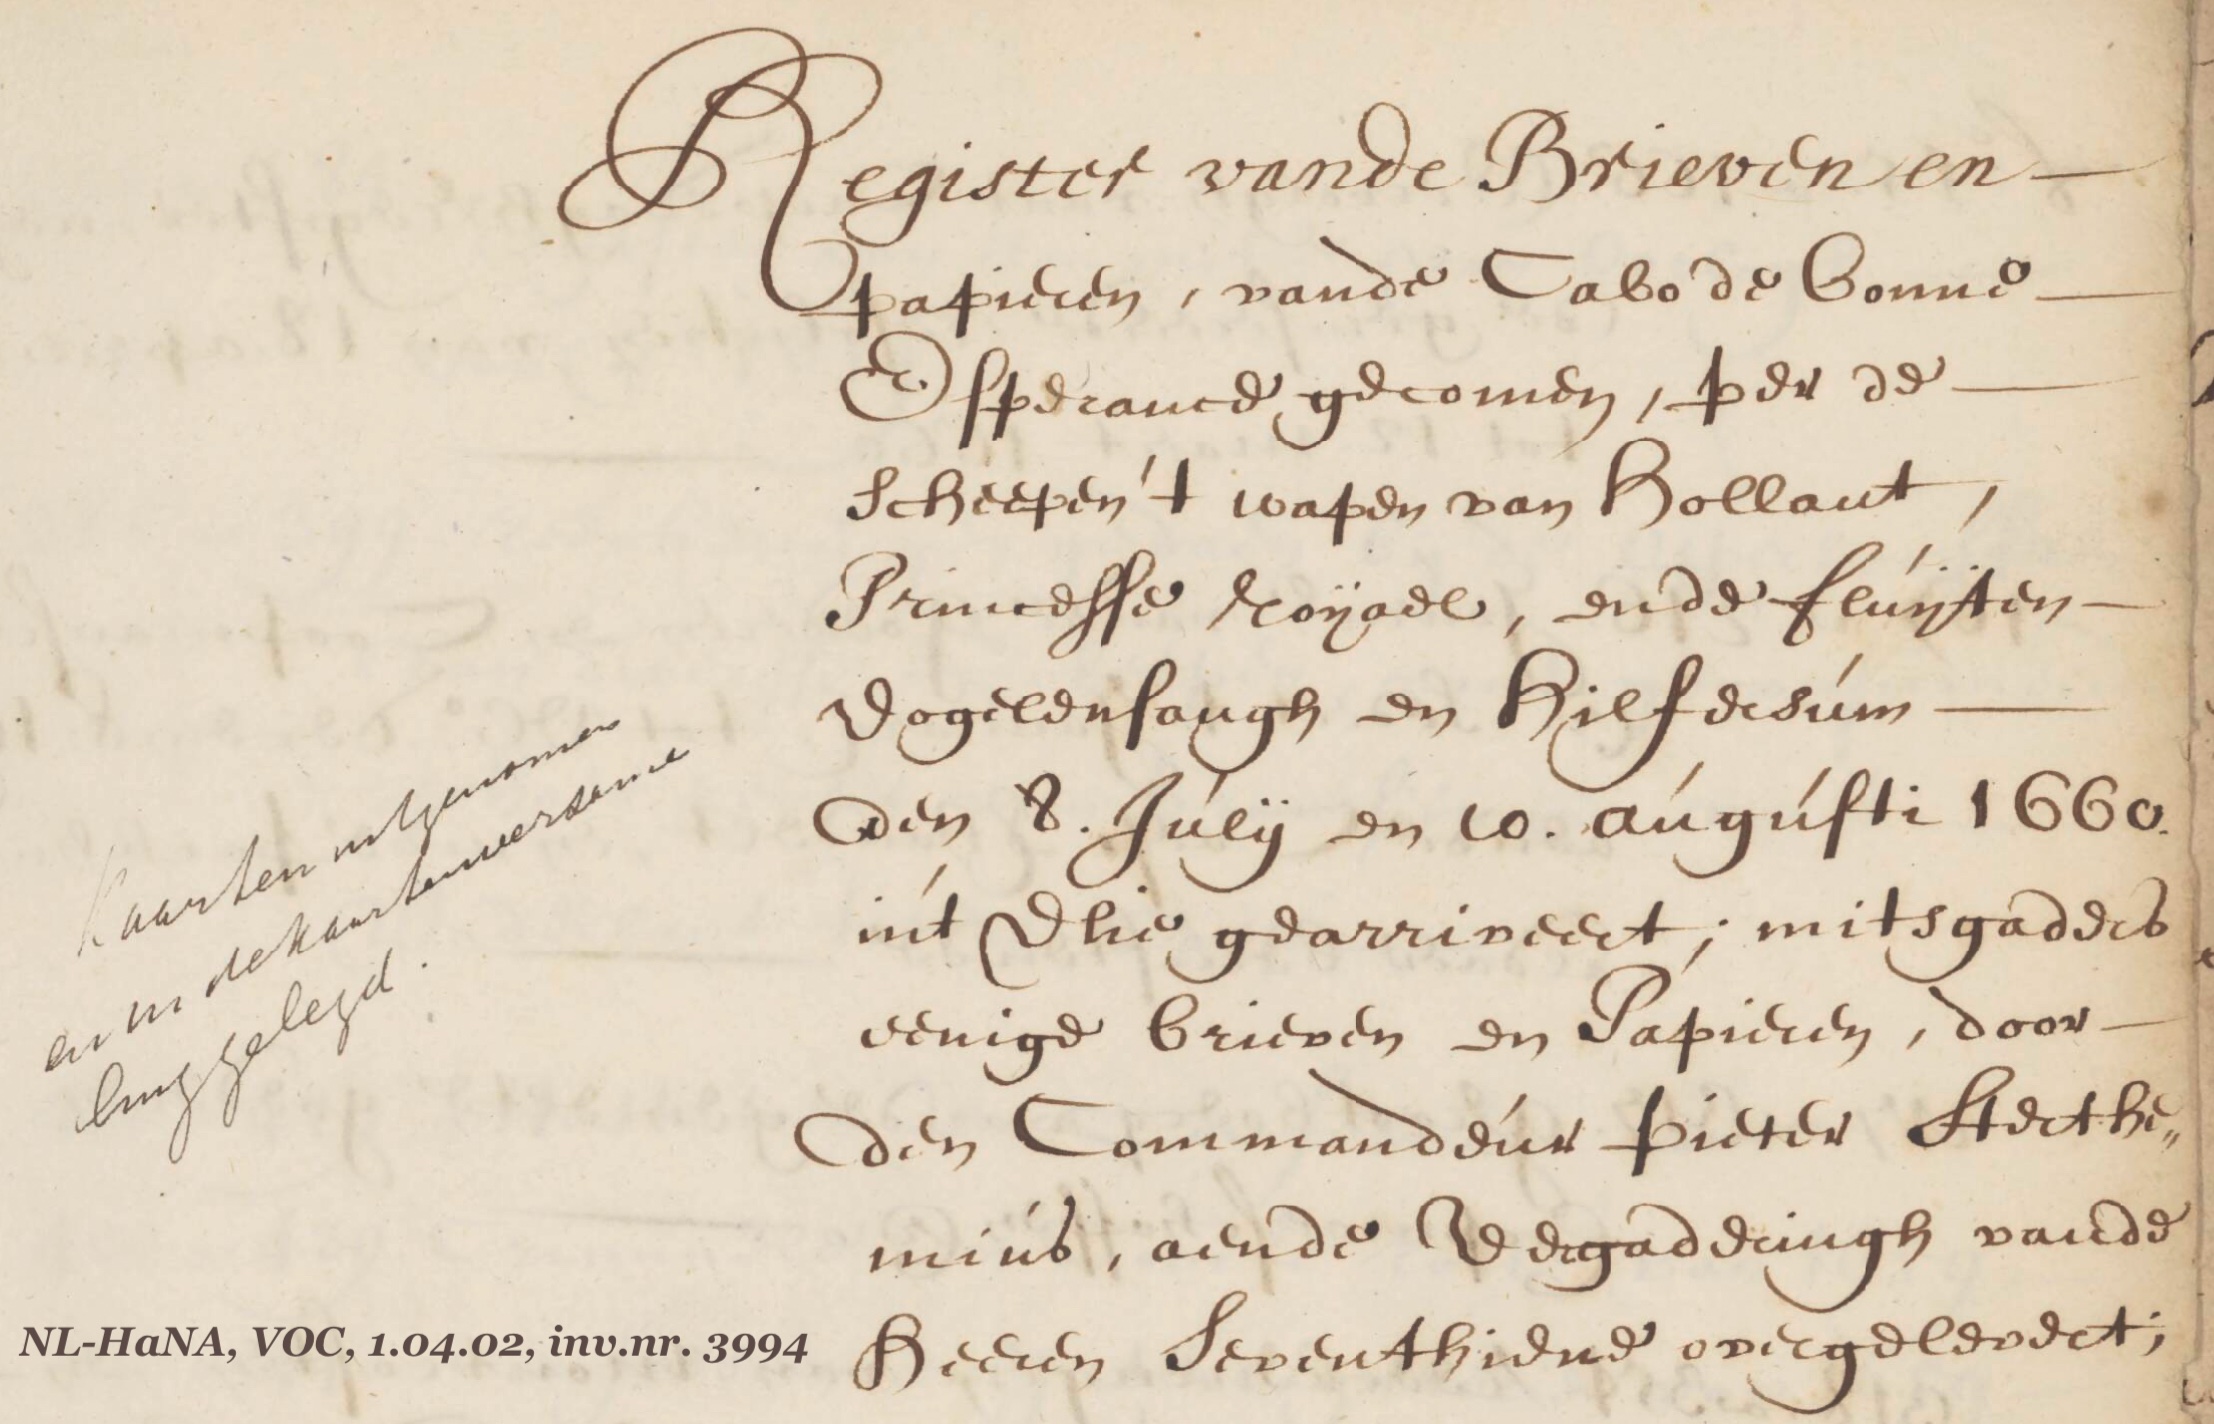 Register vande Brieven en
papieren, vande Cabo de bonne
Esperance gecomen, per de
scheepen 't wapen van Hollant,
Princesse Royael, ende fluijten
Vogelensangh en Hilfersúm
den 8. Júlij en 10. aúgústi 1660.
int Vlie gearriveert; mitsgaders
eenige brieven en Papieren, door
den Commandeúr pieter Sterthe„
miús, aende Vergaderingh vande
Heeren Seventhiene overgelevert;
Kaarten uitgenomen
en in de kaartenverzame
ling gelegd.
NL-HaNA, VOC, 1.04.02, inv.nr. 3994